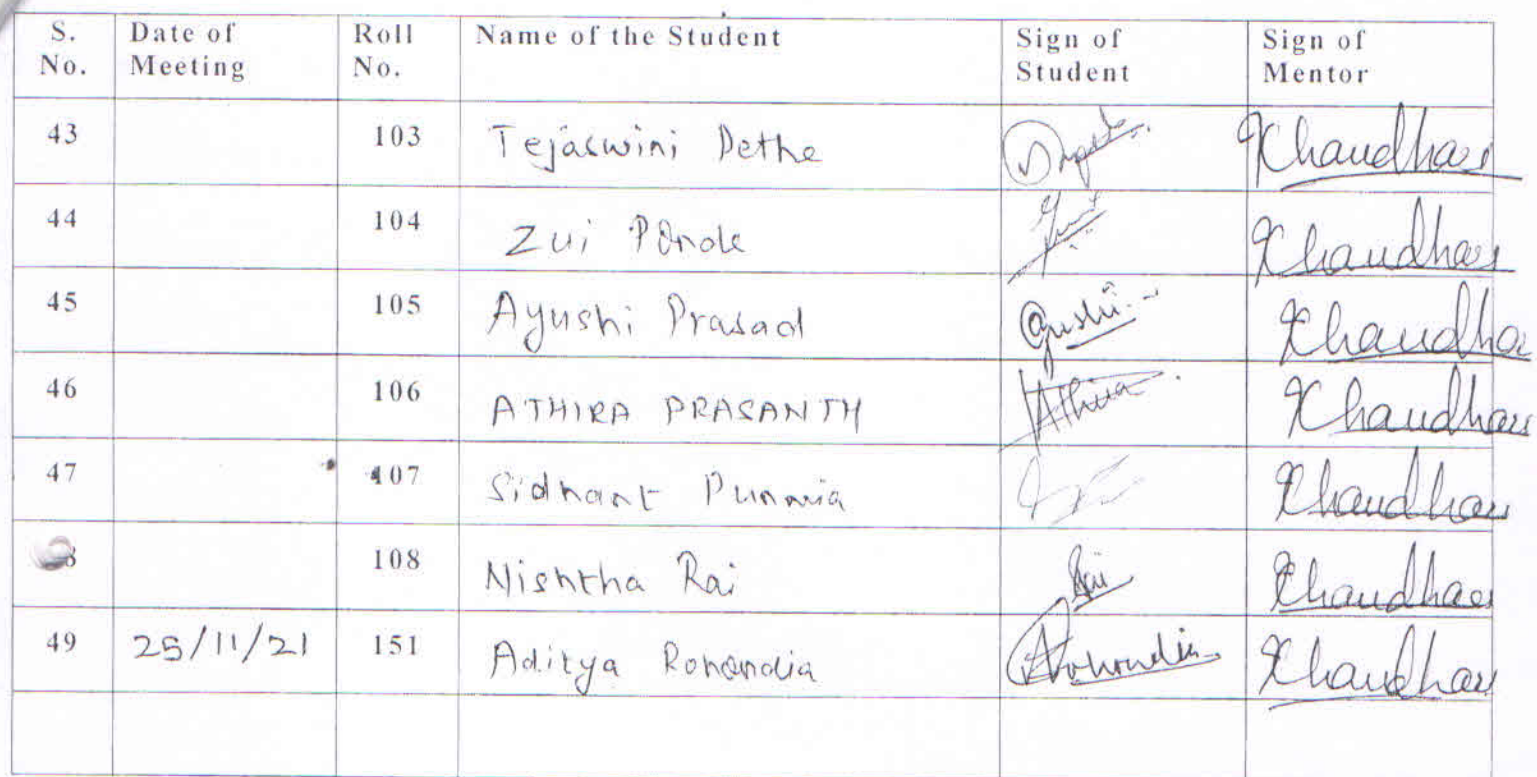 S. No. Date of Meeting Roll No. Name of the Student Sign of Student Sign of Mentor
43 103 Tejaswini Dethe Khaudhari
44 104 Zui Khaudhari
45 105 Ayushi Prasad Ayushi Khaudhari
46 106 ATHIRA PRASANTH Athira Khaudhari
47 107 Sidhant Punmia Khaudhari
108 Nishtha Rai Rai Khaudhari
49 25/11/21 151 Aditya Rohandia Khaudhari